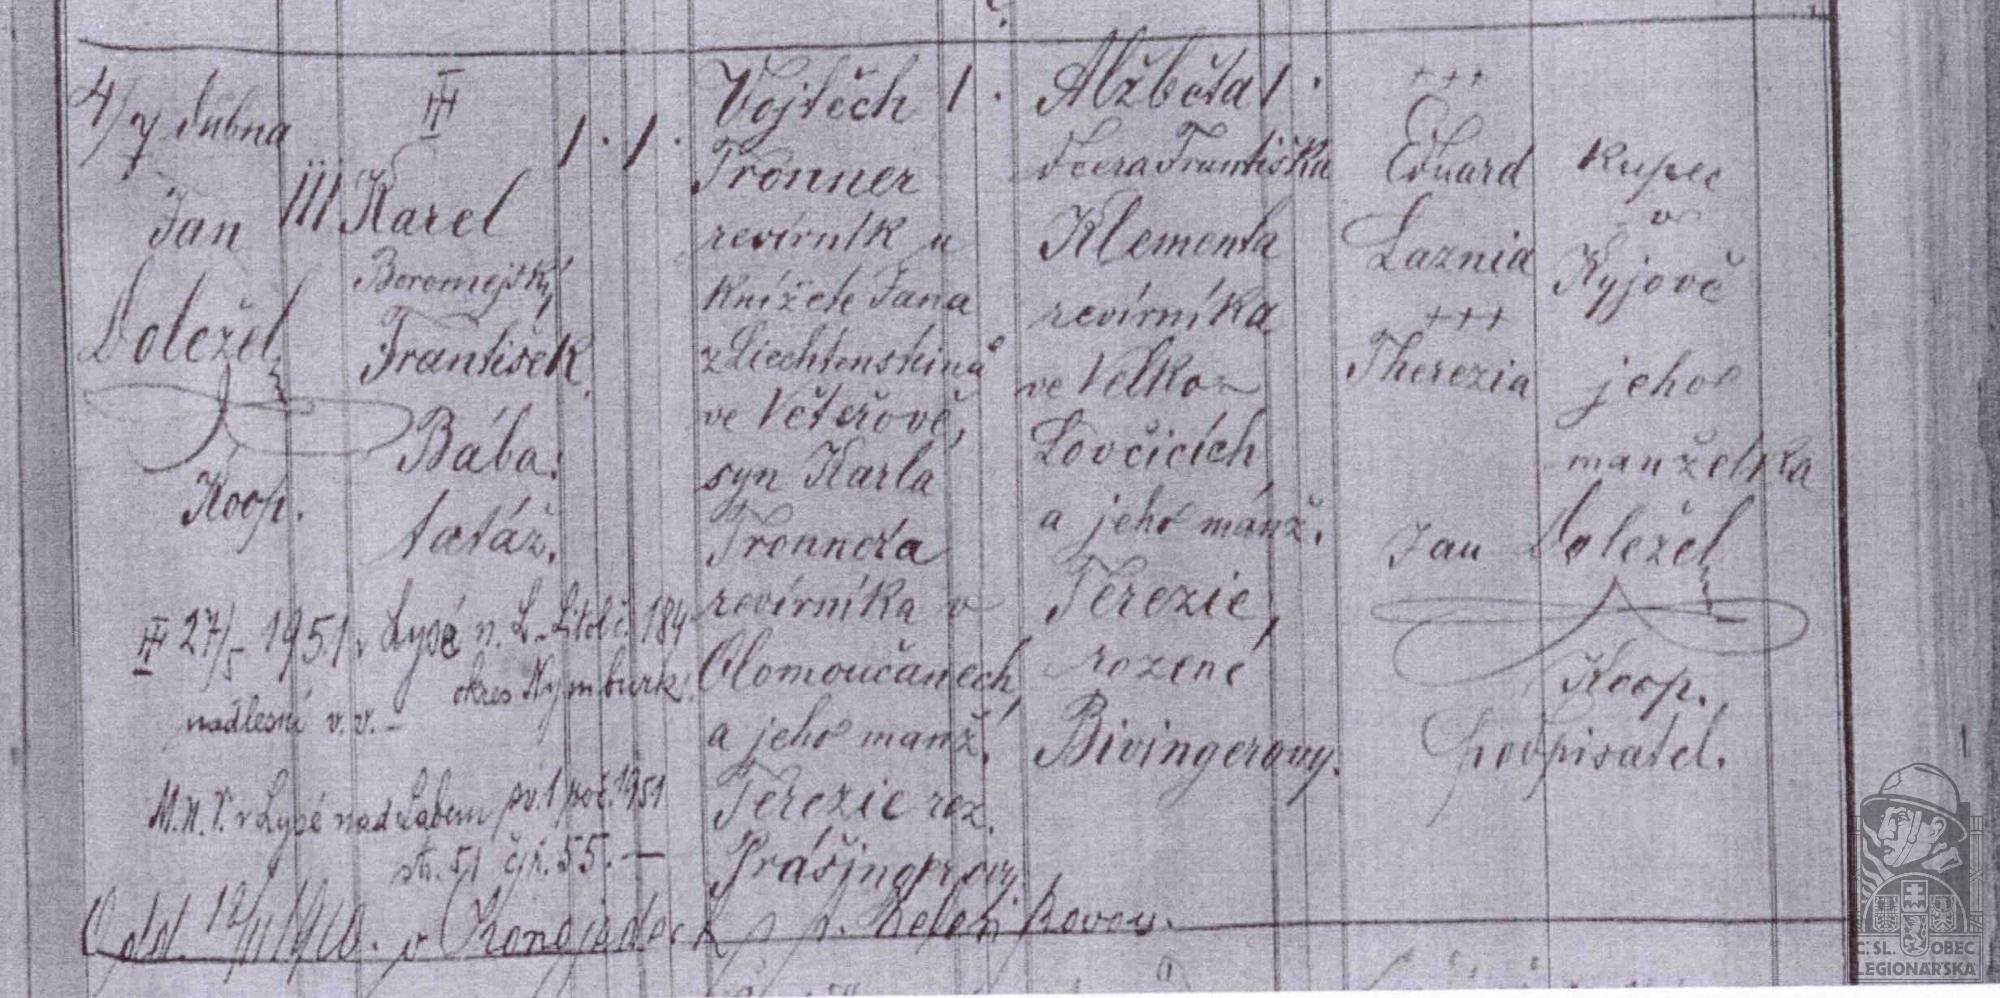 4/7 dubna
Jan
Doležel
Koop.
III Karel
Boromejský
František
Bába:
tatáž.
1. 1.
Vojtěch 1.
Tronner
revírník u
knížete Jana
z Liechtensteinů
ve Věteřově,
syn Karla
Tronnera
revírníka v
Olomoučanech,
a jeho manž.
Terezie roz.
Alžběta 1.
dcera Františka
Klementa
revírníka
ve Velko-
Lovčicích
a jeho manž.
Terezie,
rozené
Bivingerovy.
+++
Eduard
Laznia
+++
Therezia
kupec
v
Kyjově
jeho
manželka
Jan Doležel
Koop.
podpisatel.
27/5 1951 v Lysé n. L. - Litol č. 184
okres Nymburk.
nadlesní v. v. -
M.N.V. v Lysé nad Labem poř. 1951
str. 51 čj. 55. -
Odd. 12/11 1910. v